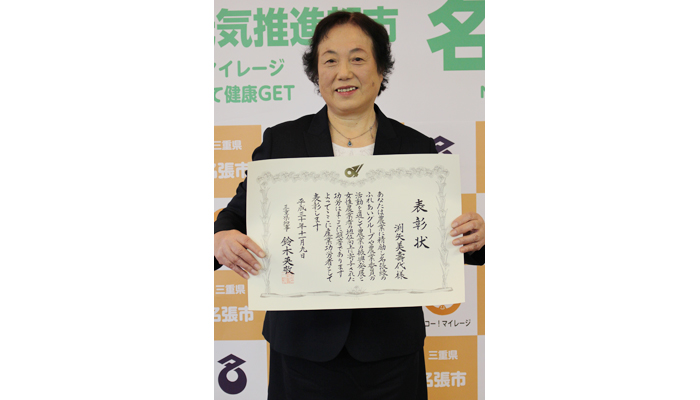 気推進都市
名
マイレージ
て健康GET
三重県
名張市
表彰状
渕矢美壽代様
あなたは農業に精励し
ふれあいグループや農業委員の
活動を通じて農業の振興発展と
女性農業者の地位向上に寄与された
功労はまことに顕著であります
よってここに産業功労者として
表彰します
平成三十年十一月九日
三重県知事 鈴木英敬
名張市
コー！マイレージ
三重県
名張市